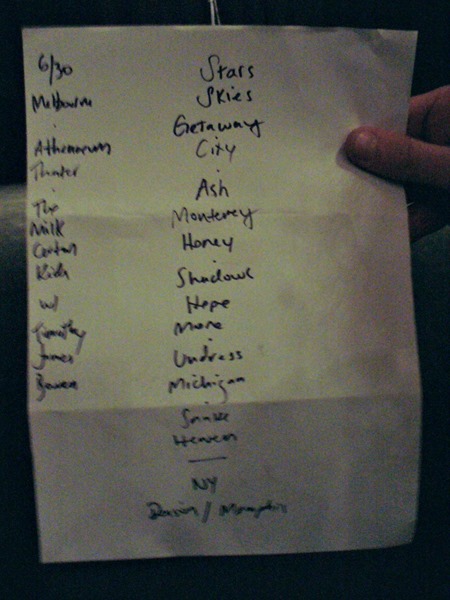 6/30
Melbourne
Athenaeum
Theater
The
Milk
Carton
Kids
w/
Timothy
James
Bowen
Stars
Skies
Getaway
City
Ash
Monterey
Honey
Shadows
Hope
More
Undress
Michigan
Snake
Heaven
NY
/ Memphis